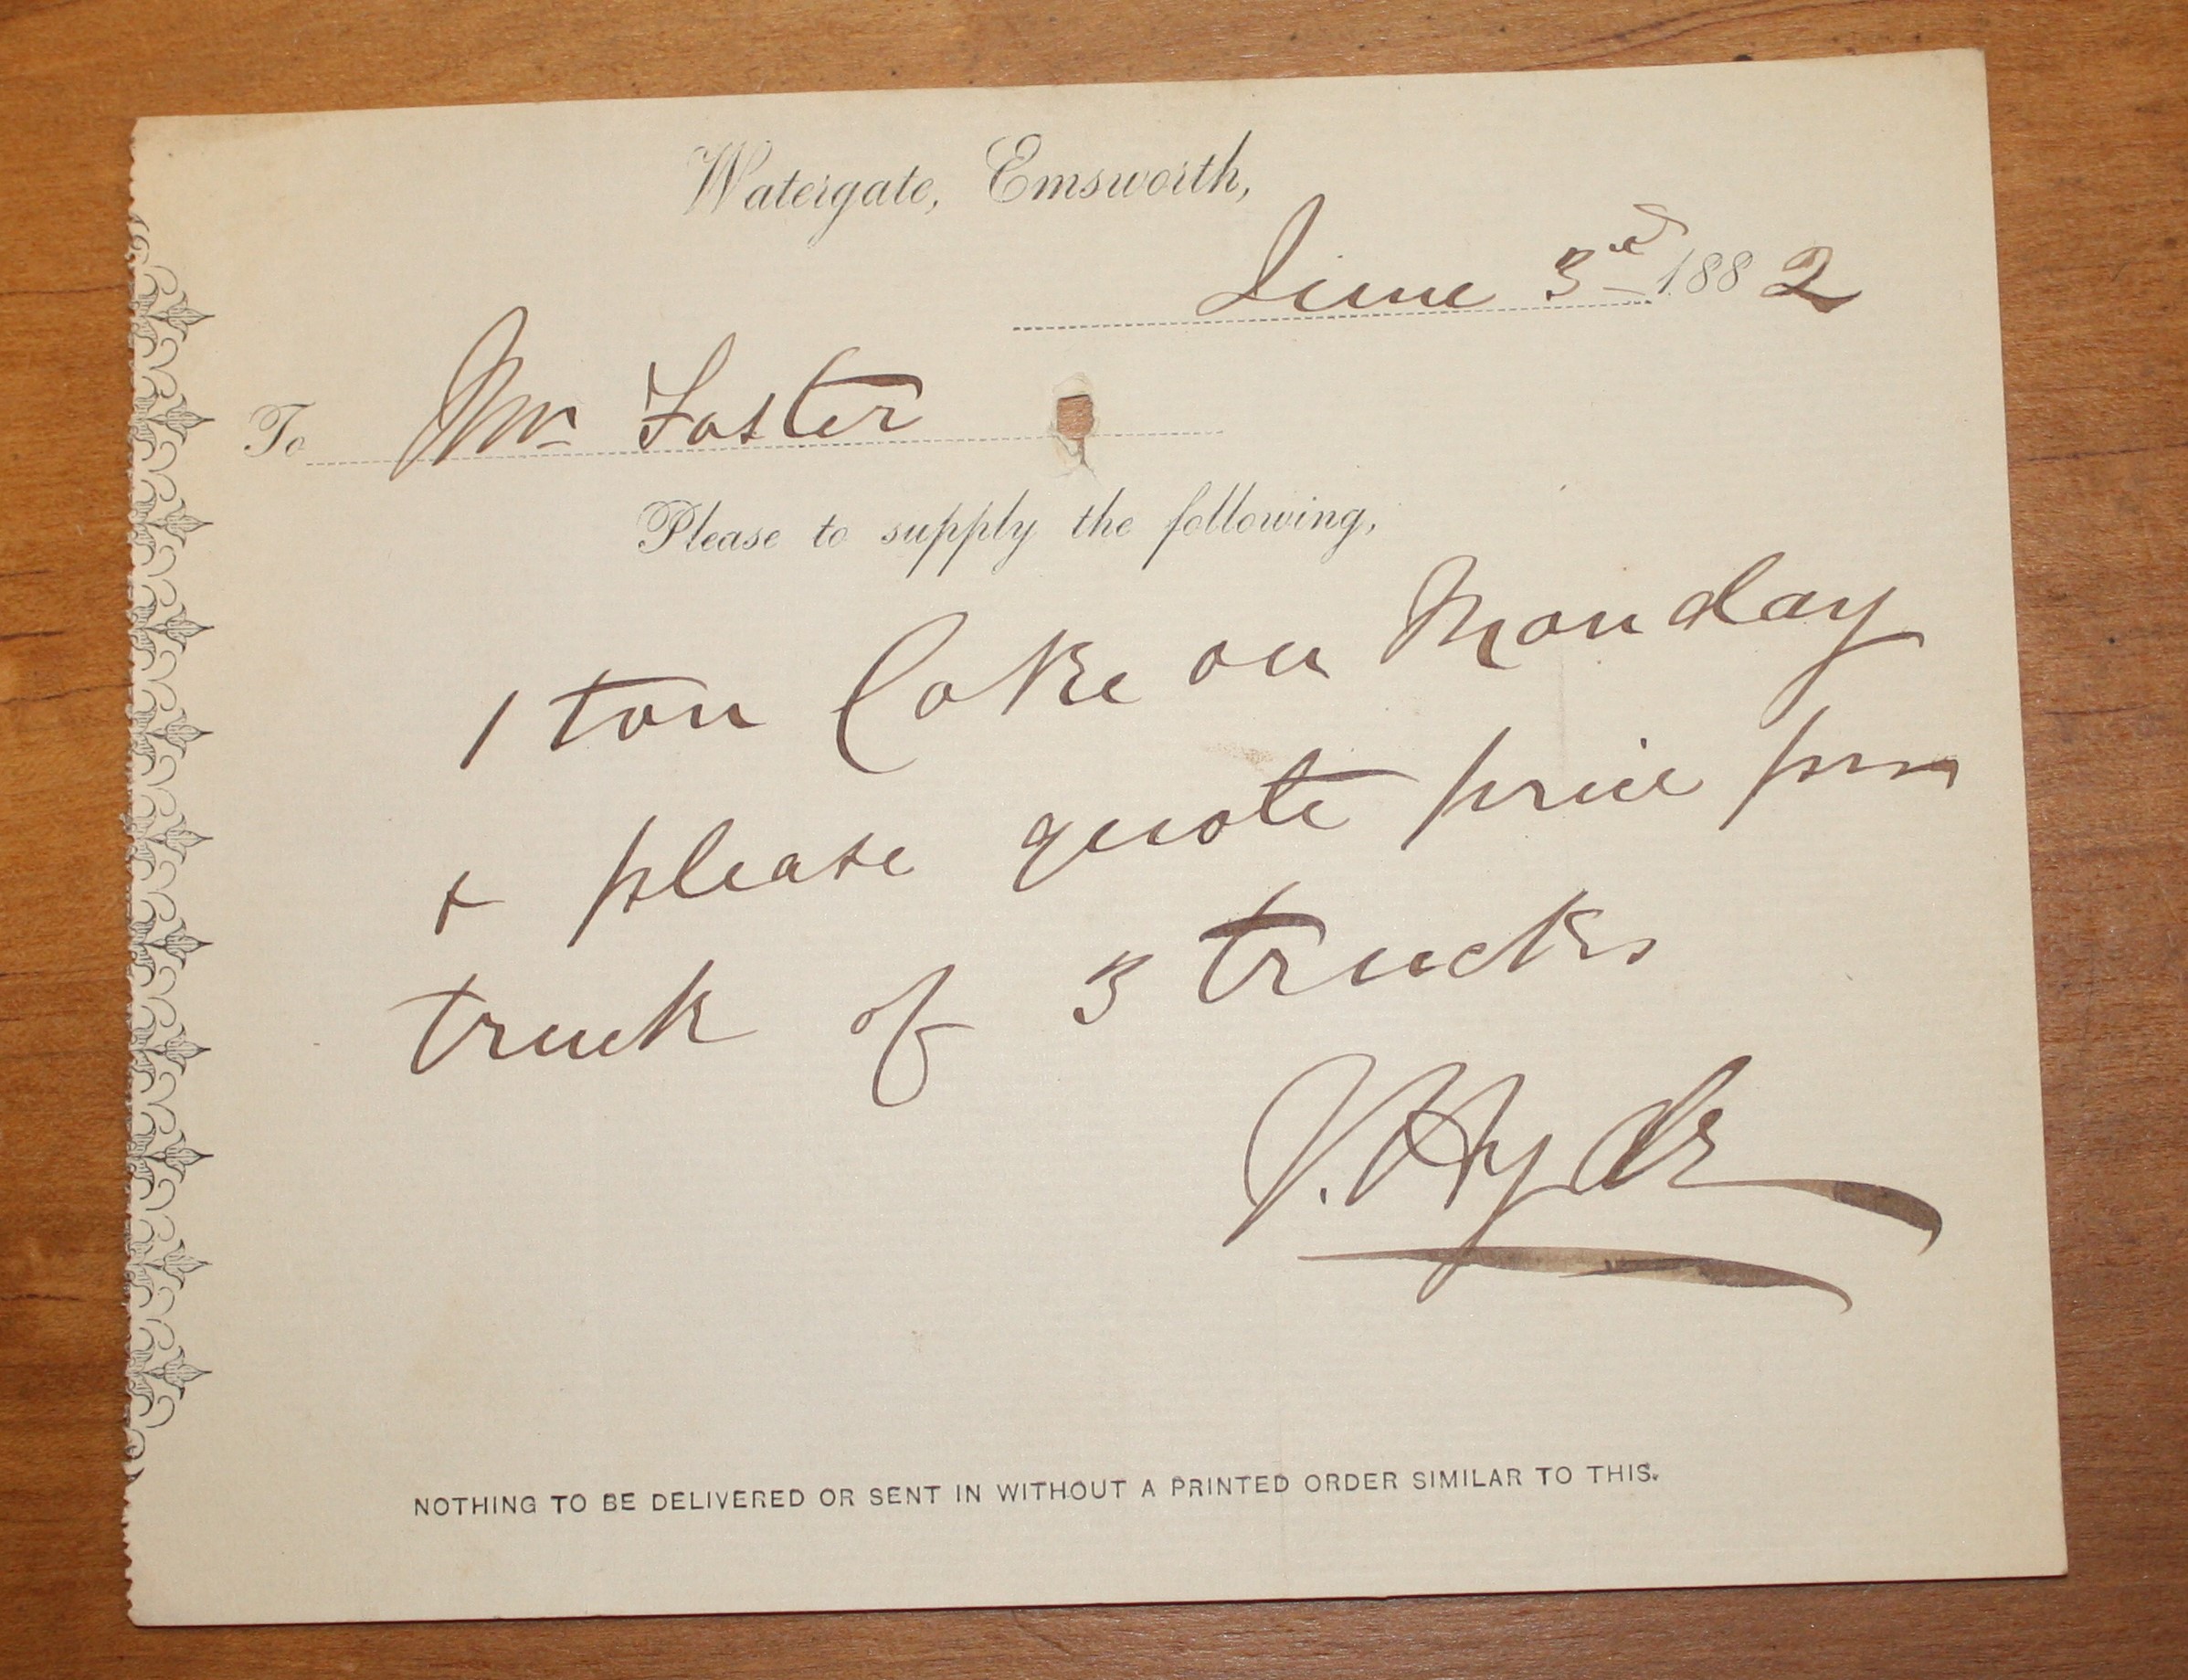 Watergate, Emsworth,
June 3rd 1882
To Mr Foster
Please to supply the following,
1 ton Coke on Monday
& please quote price per
truck of 3 trucks
J. Hyde
NOTHING TO BE DELIVERED OR SENT IN WITHOUT A PRINTED ORDER SIMILAR TO THIS.